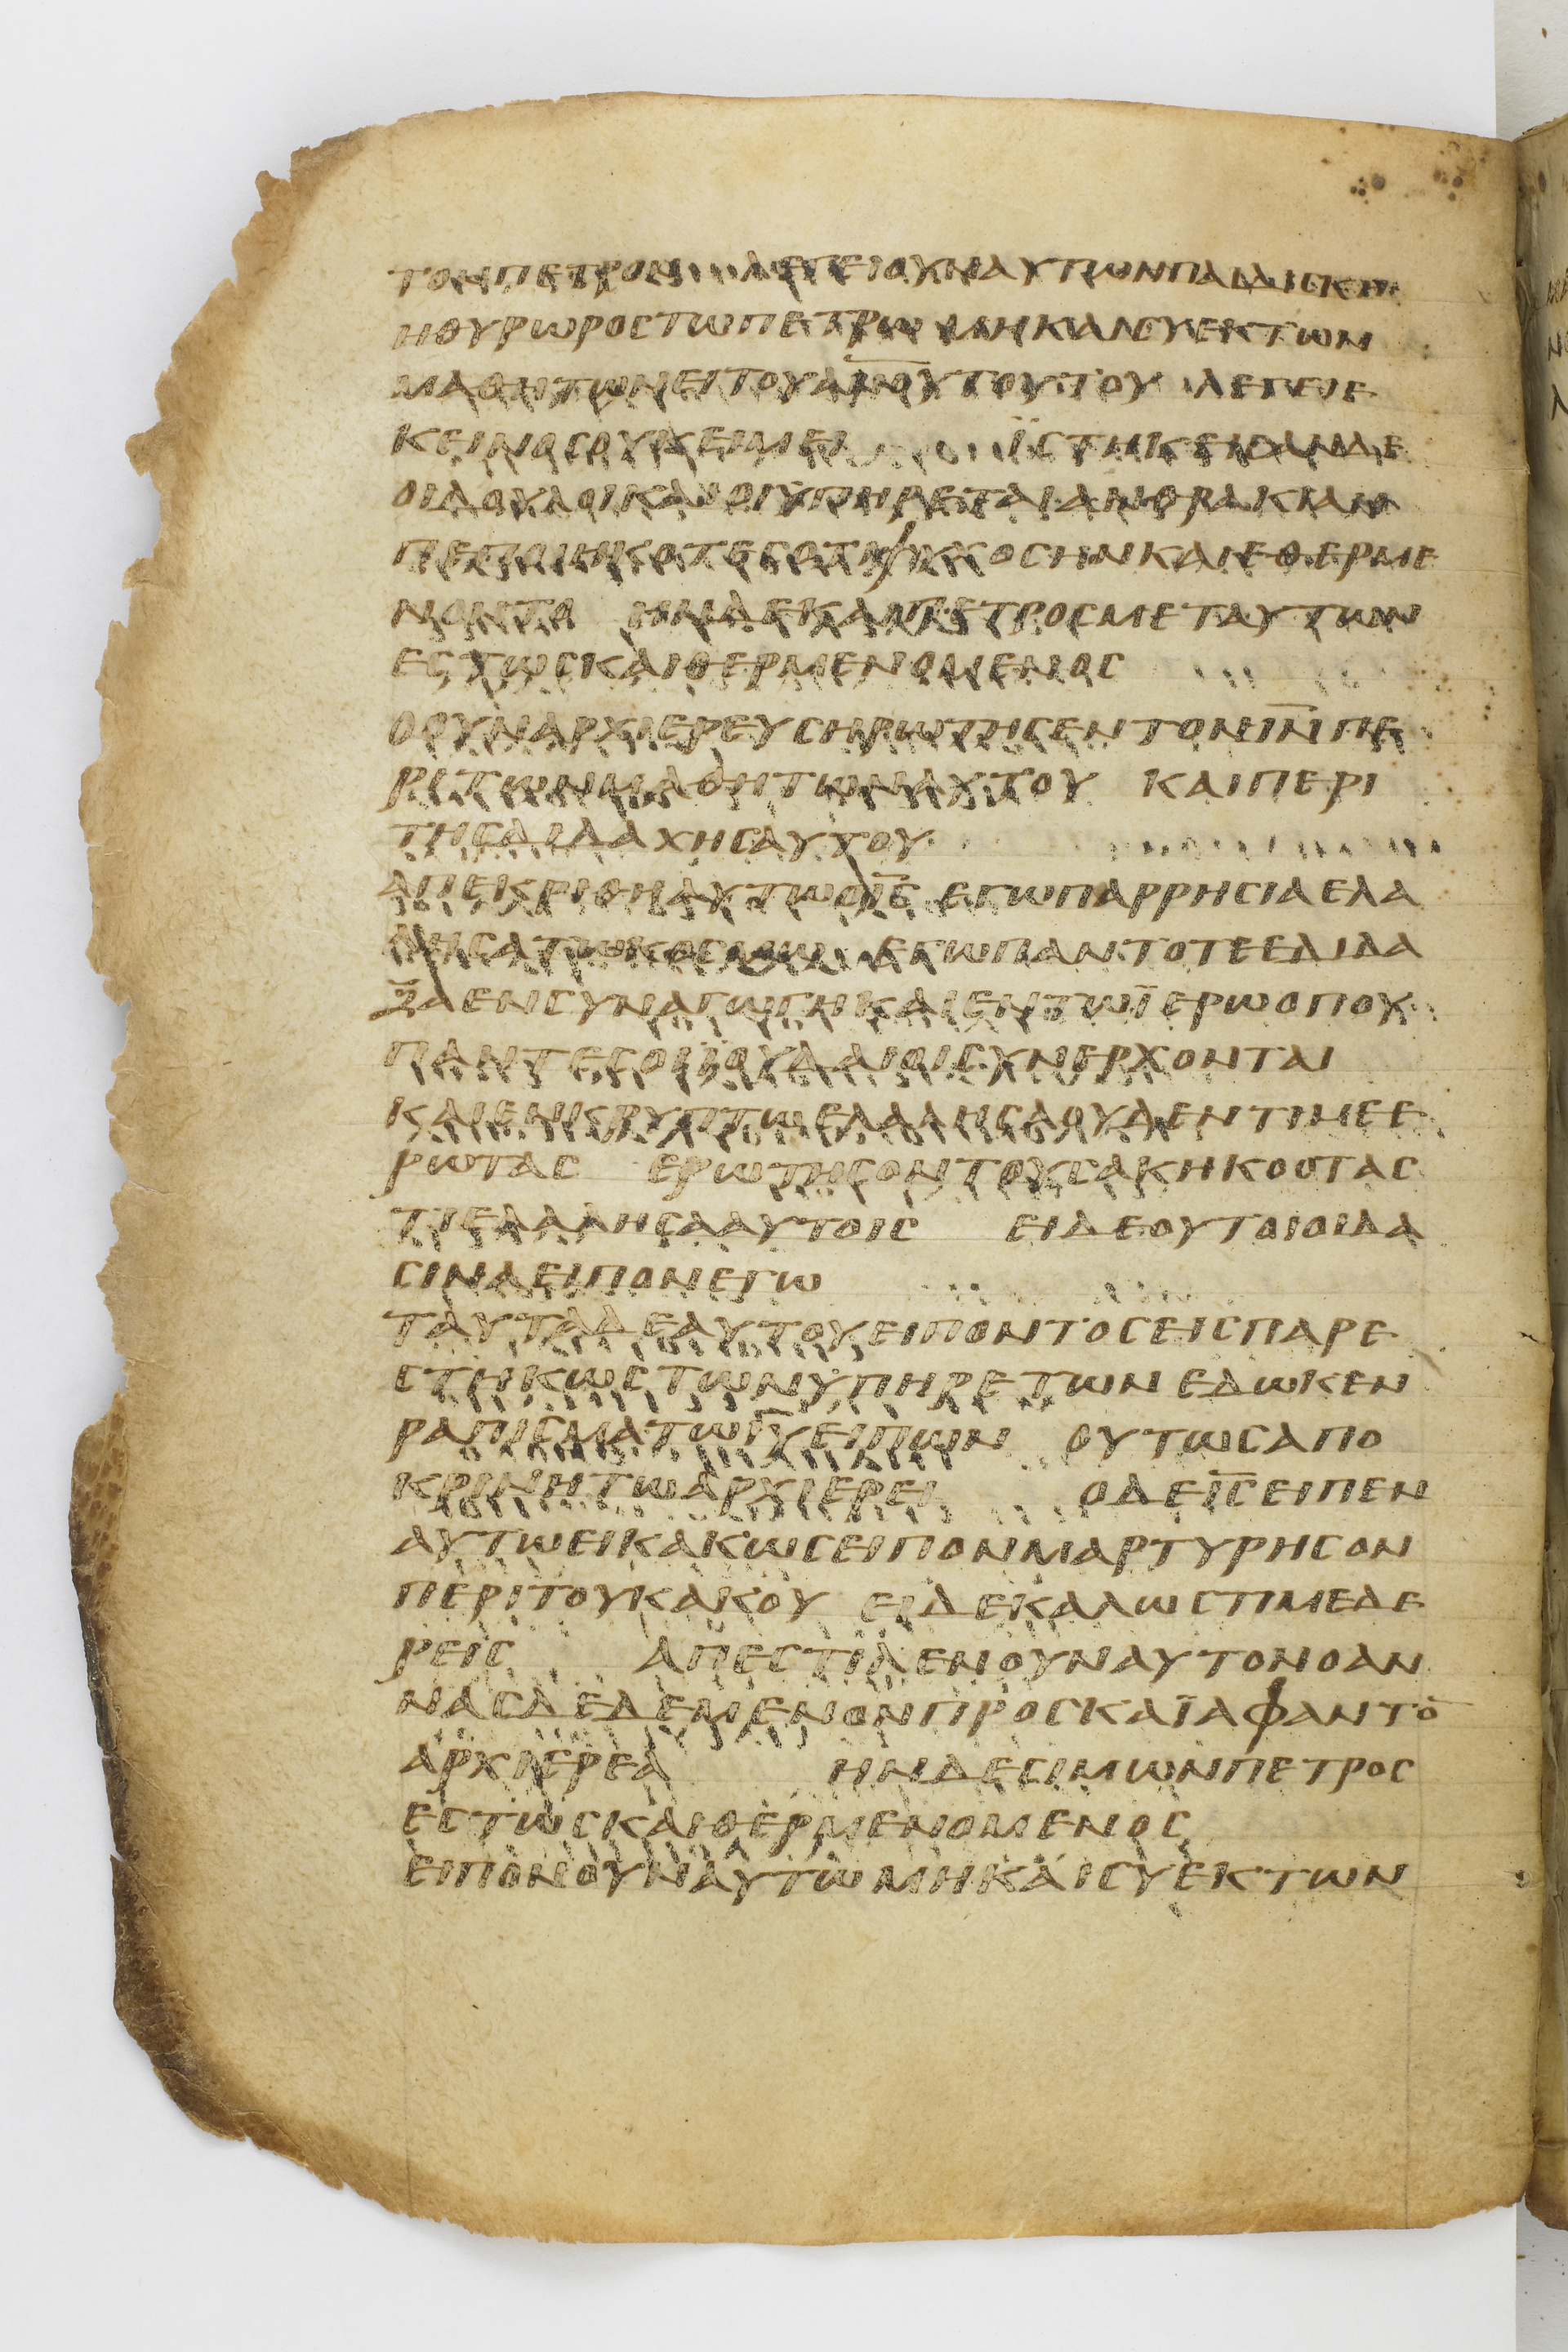 ΤΟΝΠΕΤΡΟΝ ΛΕΓΕΙΟΥΝΑΥΤΩΗΠΑΙΔΙCΚΗ
ΗΘΥΡΩΡΟCΤΩΠΕΤΡΩ ΜΗΚΑΙCΥΕΚΤΩΝ
ΜΑΘΗΤΩΝΕΙΤΟΥΑΝ̅Ο̅Υ̅ΤΟΥΤΟΥ ΛΕΓΕΙΕ
ΚΕΙΝΟCΟΥΚΕΙΜΕΙ ΪCΤΗΚΕΙCΑΝΔΕ
ΟΙΔΟΥΛΟΙΚΑΙΟΙΥΠΗΡΕΤΑΙΑΝΘΡΑΚΙΑΝ
ΠΕΠΟΙΗΚΟΤΕCΟΤΙΨΥΚΟCΗΝΚΑΙΕΘΕΡΜΕ
ΝΟΝΤΟ ΗΝΔΕΚΑΙΠΕΤΡΟCΜΕΤΑΥΤΩΝ
ΕCΤΩCΚΑΙΘΕΡΜΕΝΟΜΕΝΟC
ΟΟΥΝΑΡΧΙΕΡΕΥCΗΡΩΤΗCΕΝΤΟΝΙ̅Ν̅ΠΕ
ΡΙΤΩΝΜΑΘΗΤΩΝΑΥΤΟΥ ΚΑΙΠΕΡΙ
ΤΗCΔΙΔΑΧΗCΑΥΤΟΥ
ΑΠΕΚΡΙΘΗΑΥΤΩΟΙ̅C̅ ΕΓΩΠΑΡΡΗCΙΑΕΛΑ
ΛΗCΑΤΩΚΟCΜΩ ΕΓΩΠΑΝΤΟΤΕΕΔΙΔΑ
ΞΑΕΝCΥΝΑΓΩΓΗΚΑΙΕΝΤΩΪΕΡΩΟΠΟΥ
ΠΑΝΤΕCΟΙΪΟΥΔΑΙΟΙCΥΝΕΡΧΟΝΤΑΙ
ΚΑΙΕΝΚΡΥΠΤΩΕΛΑΛΗCΑΟΥΔΕΝΤΙΜΕΕ
ΡΩΤΑC ΕΡΩΤΗCΟΝΤΟΥCΑΚΗΚΟΟΤΑC
ΤΙΕΛΑΛΗCΑΑΥΤΟΙC ΕΙΔΕΟΥΤΟΙΟΙΔΑ
CΙΝΑΕΙΠΟΝΕΓΩ
ΤΑΥΤΑΔΕΑΥΤΟΥΕΙΠΟΝΤΟCΕΙCΠΑΡΕ
CΤΗΚΩCΤΩΝΥΠΗΡΕΤΩΝΕΔΩΚΕΝ
ΡΑΠΙCΜΑΤΩΙ̅Υ̅ΕΙΠΩΝ ΟΥΤΩCΑΠΟ
ΚΡΙΝΗΤΩΑΡΧΙΕΡΕΙ ΟΔΕΙ̅C̅ΕΙΠΕΝ
ΑΥΤΩΕΙΚΑΚΩCΕΙΠΟΝΜΑΡΤΥΡΗCΟΝ
ΠΕΡΙΤΟΥΚΑΚΟΥ ΕΙΔΕΚΑΛΩCΤΙΜΕΔΕ
ΡΕΙC ΑΠΕCΤΙΛΕΝΟΥΝΑΥΤΟΝΟΑΝ
ΝΑCΔΕΔΕΜΕΝΟΝΠΡΟCΚΑΪΑΦΑΝΤΟ̅
ΑΡΧΙΕΡΕΑ ΗΝΔΕCΙΜΩΝΠΕΤΡΟC
ΕCΤΩCΚΑΙΘΕΡΜΕΝΟΜΕΝΟC
ΕΙΠΟΝΟΥΝΑΥΤΩΜΗΚΑΙCΥΕΚΤΩΝ